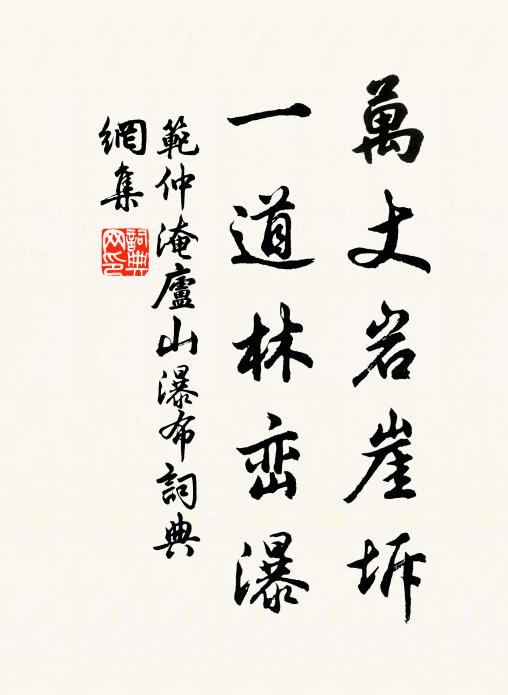 萬丈岩崖坼
一道林峦瀑
範仲淹廬山瀑布詞典
網集
詞典
网印